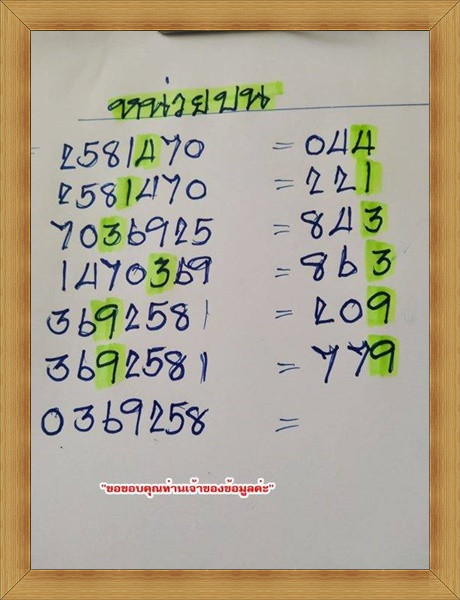 หน่วยบน
2581470 = 044
2581470 = 221
7036925 = 843
1470369 = 863
3692581 = 209
3692581 = 779
0369258 =
"ขอขอบคุณท่านเจ้าของข้อมูลค่ะ"